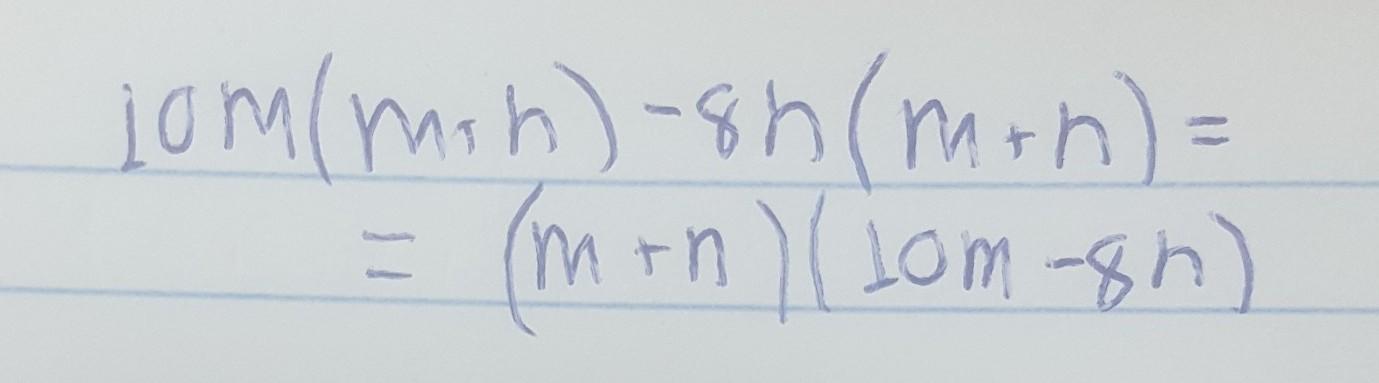 10m(m+n)-8n(m+n)=
=(m+n)(10m-8n)